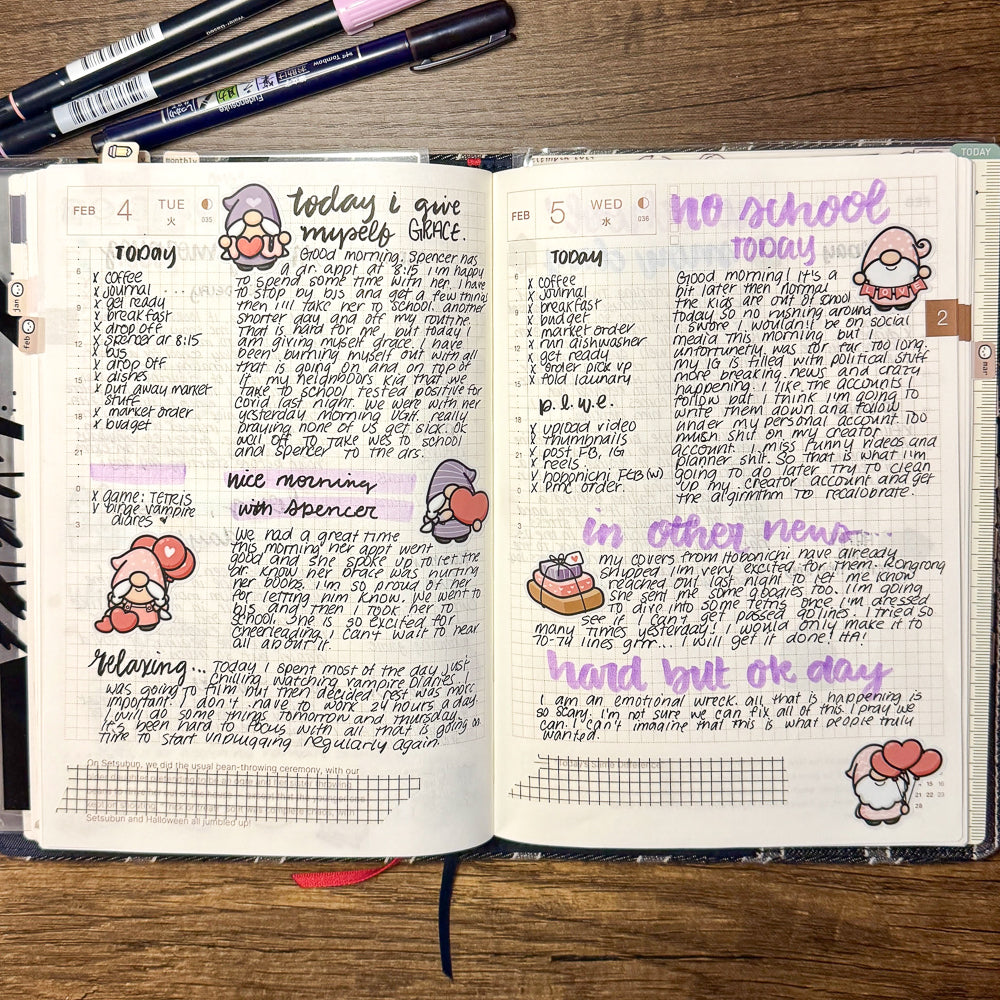 Water-Based
Tombow
Fudenosuke
monthly
TODAY
jan
feb
FEB 4 TUE
火
035
today i give
myself GRACE.
TODAY
x coffee
x journal
x get ready
x breakfast
x drop off
x spencer dr 8:15
x bjs
x drop off
x dishes
x put away market
stuff
x market order
x budget
x game: TETRIS
v binge vampire
diaries
Good morning. Spencer has
a dr. appt at 8:15 I'm happy
to spend some time with her. I have
to stop by bjs and get a few things
then I'll take her to school. another
shorter day and off my routine.
That is hard for me, but today I
am giving myself grace. I have
been burning myself out with all
that is going on and on top of
it my neighbors kid that we
take to school, tested positive for
covid last night. We were with her
yesterday morning ugh. really
praying none of us get sick. Ok
well off to take wes to school
and spencer to the drs.
nice morning
with spencer
We had a great time
this morning. her appt went
good and she spoke up to let the
dr. know her brace was hurting
her boobs. I'm so proud of her
for letting him know. We went to
bjs and then I took her to
school. She is so excited for
cheerleading. I can't wait to hear
all about it.
relaxing... Today I spent most of the day just
chilling watching vampire Diaries. I
was going to film but then decided rest was more
important. I don't have to work 24 hours a day.
I will do some things tomorrow and thursday.
It's been hard to focus with all that is going on.
Time to start unplugging regularly again.
On Setsubun, we did the usual bean-throwing ceremony, with our
Setsubun and Halloween all jumbled up!
FEB 5 WED
水
036
no school
TODAY
TODAY
x coffee
x journal
x breakfast
x budget
x market order
x run dishwasher
x get ready
x order pick up
x fold laundry
p.l.w.e.
x upload video
x thumbnails
x post FB, IG
x reels
v hobonichi FEB(W)
x PMC order.
Good morning! It's a
bit later then normal
the kids are out of school
today so no rushing around
I swore I wouldn't be on social
media this morning but I
unfortunetly was for far too long.
my IG is filled with political stuff
more breaking news and crazy
happening. I like the accounts I
follow but I think I'm going to
write them down and follow
under my personal account. Too
mush shit on my creator
account. I miss funny videos and
planner shit. So that is what I'm
going to do later try to clean
up my creator account and get
the algirithm to recalobrate.
LOVE
2
mar
in other news...
my covers from Hobonichi have already
shipped I'm very excited for them. Rongrong
reached out last night to let me know
she sent me some goodies too. I'm going
to dive into some tetris once I'm dressed
see if I can't get passed 80 lines. I tried so
many times yesterday! I would only make it to
70-74 lines grrr... I will get it done! HA!
hard but ok day
I am an emotional wreck. all that is happening is
so scary. I'm not sure we can fix all of this. I pray we
can. I can't imagine that this is what people truly
wanted.